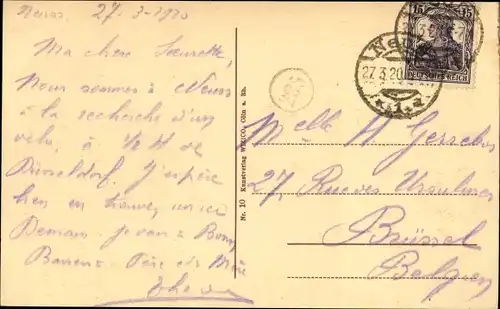 Neuss. 27-3-1920
Ma chère Soeurette,
Nous sommes à Neuss
à la recherche d'un
velo, à 1/2 H de
Düsseldorf. J'espère
bien en trouver un ici
Demain je vais à Bonn
Baisers Père et Mère
27.3.20
15 15
DEUTSCHES REICH
Melle H Gerrebos
27, Rue des Ursulines
Brüssel
Belgien
Nr. 10 Kunstverlag WEXCO, Cöln a. Rh.